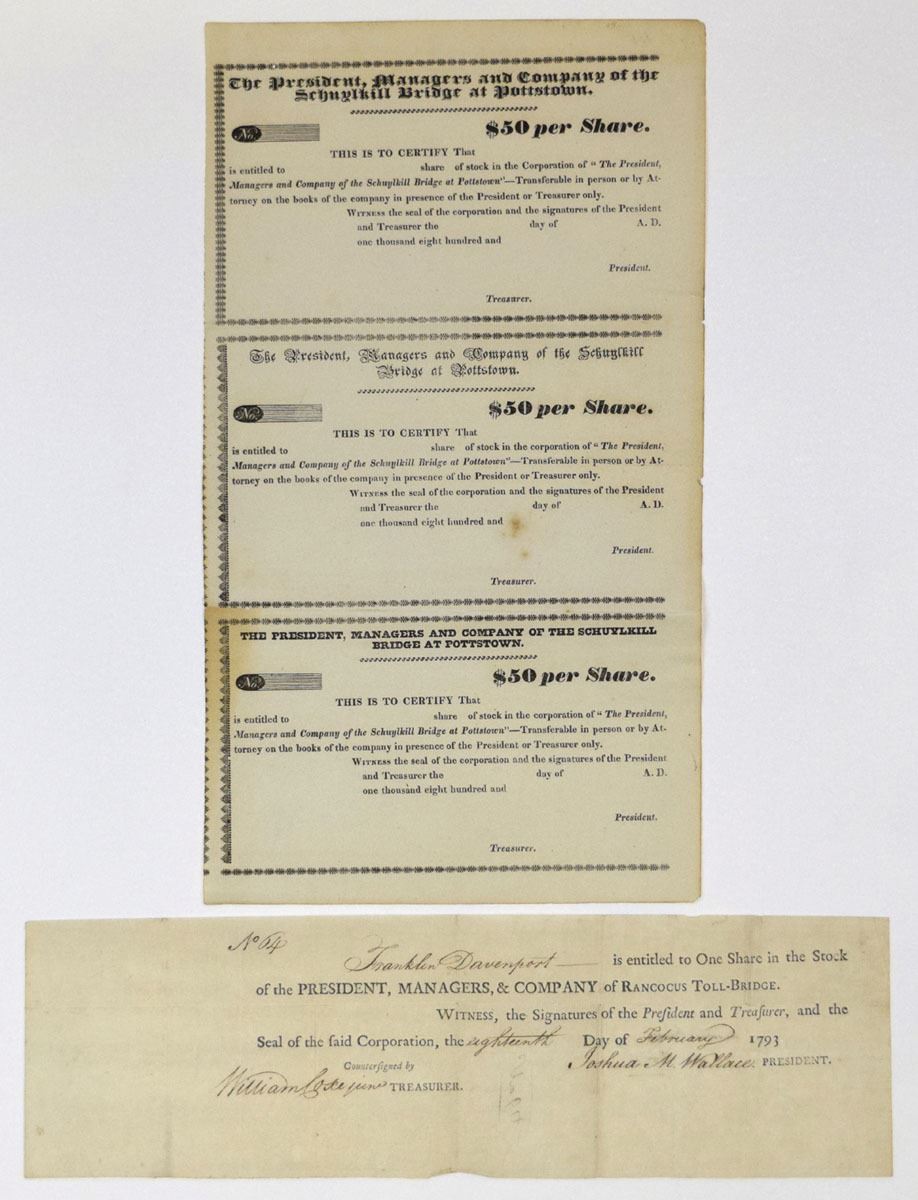 The President, Managers and Company of the
Schuylkill Bridge at Pottstown.
No.
$50 per Share.
THIS IS TO CERTIFY That
is entitled to share of stock in the Corporation of "The President,
Managers and Company of the Schuylkill Bridge at Pottstown"—Transferable in person or by At-
torney on the books of the company in presence of the President or Treasurer only.
WITNESS the seal of the corporation and the signatures of the President
and Treasurer the day of A. D.
one thousand eight hundred and
President.
Treasurer.
The President, Managers and Company of the Schuylkill
Bridge at Pottstown.
No.
$50 per Share.
THIS IS TO CERTIFY That
is entitled to share of stock in the corporation of "The President,
Managers and Company of the Schuylkill Bridge at Pottstown"—Transferable in person or by At-
torney on the books of the company in presence of the President or Treasurer only.
WITNESS the seal of the corporation and the signatures of the President
and Treasurer the day of A. D.
one thousand eight hundred and
President.
Treasurer.
THE PRESIDENT, MANAGERS AND COMPANY OF THE SCHUYLKILL
BRIDGE AT POTTSTOWN.
No.
$50 per Share.
THIS IS TO CERTIFY That
is entitled to share of stock in the corporation of "The President,
Managers and Company of the Schuylkill Bridge at Pottstown"—Transferable in person or by At-
torney on the books of the company in presence of the President or Treasurer only.
WITNESS the seal of the corporation and the signatures of the President
and Treasurer the day of A. D.
one thousand eight hundred and
President.
Treasurer.
No 64
Franklin Davenport — is entitled to One Share in the Stock
of the PRESIDENT, MANAGERS, & COMPANY of RANCOCUS TOLL-BRIDGE.
WITNESS, the Signatures of the Preſident and Treaſurer, and the
Seal of the ſaid Corporation, the eighteenth Day of February 1793
Counterſigned by
Joshua M. Wallace. PRESIDENT.
William Coxe junr TREASURER.